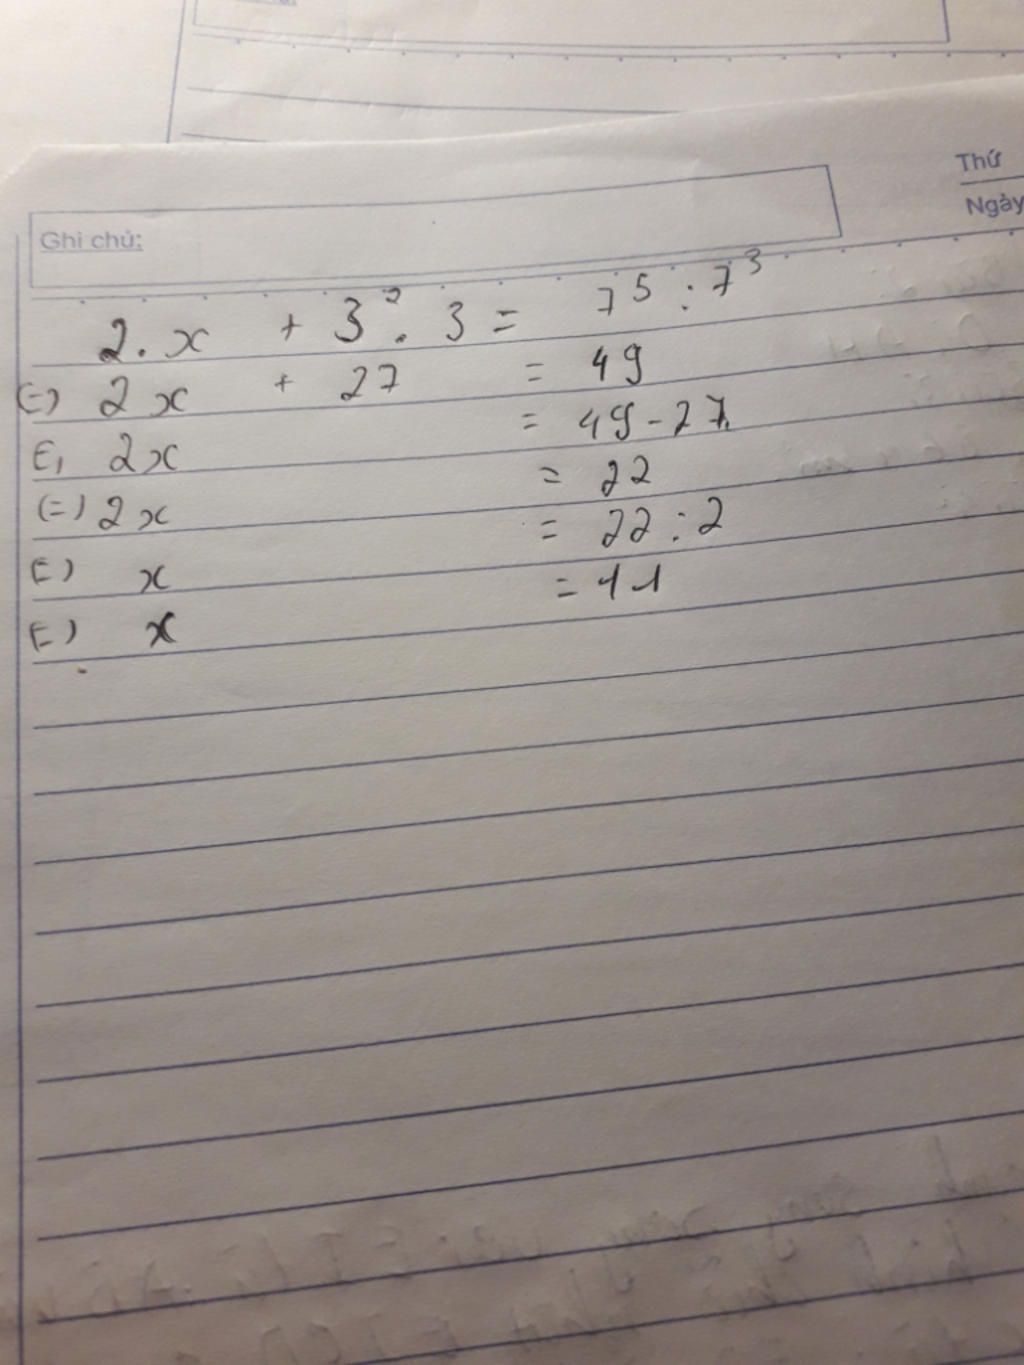 Thứ
Ngày
Ghi chú:
2. x + 3² . 3 = 7⁵ : 7³
(=) 2x + 27 = 49
(=) 2x = 49 - 27
(=) 2x = 22
(=) x = 22 : 2
(=) x = 11